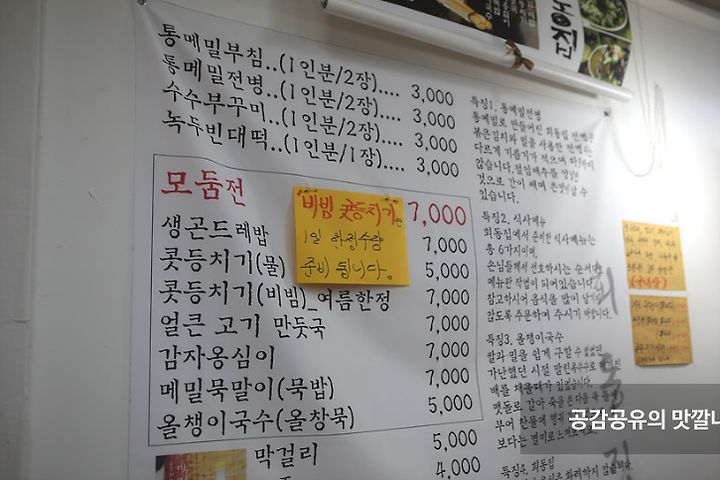 통메밀부침..(1인분/2장).... 3,000
통메밀전병..(1인분/2장).... 3,000
수수부꾸미..(1인분/2장).... 3,000
녹두빈대떡..(1인분/1장).... 3,000
모둠전 7,000
생곤드레밥 7,000
콧등치기(물) 5,000
콧등치기(비빔)_여름한정 7,000
얼큰 고기 만둣국 7,000
감자옹심이 7,000
메밀묵말이(묵밥) 5,000
올챙이국수(올창묵) 5,000
막걸리 4,000
"비빔 콧등치기"는
1일 한정수량
준비 됩니다.
특징1. 통메밀전병
통메밀로 만들어진 회동집 전병은
볶은김치와
특징2. 식사메뉴
회동집에서 준비한 식사메뉴는
총 6가지이며,
손님들께서 선호하시는 순서대로
메뉴판 작업이 되어있습니다.
참고하시어 음식을 많이 남기지
않도록 주문하여 주시기 바랍니다.
특징3. 올챙이국수
쌀과 밀을 쉽게 구할 수 없었던
가난했던 시절 말린옥수수로
배를 채울때가 있었습니다.
맷돌로 갈아 죽을 쑨 다음
특징4. 회동집
회동집
공감공유의 맛깔나